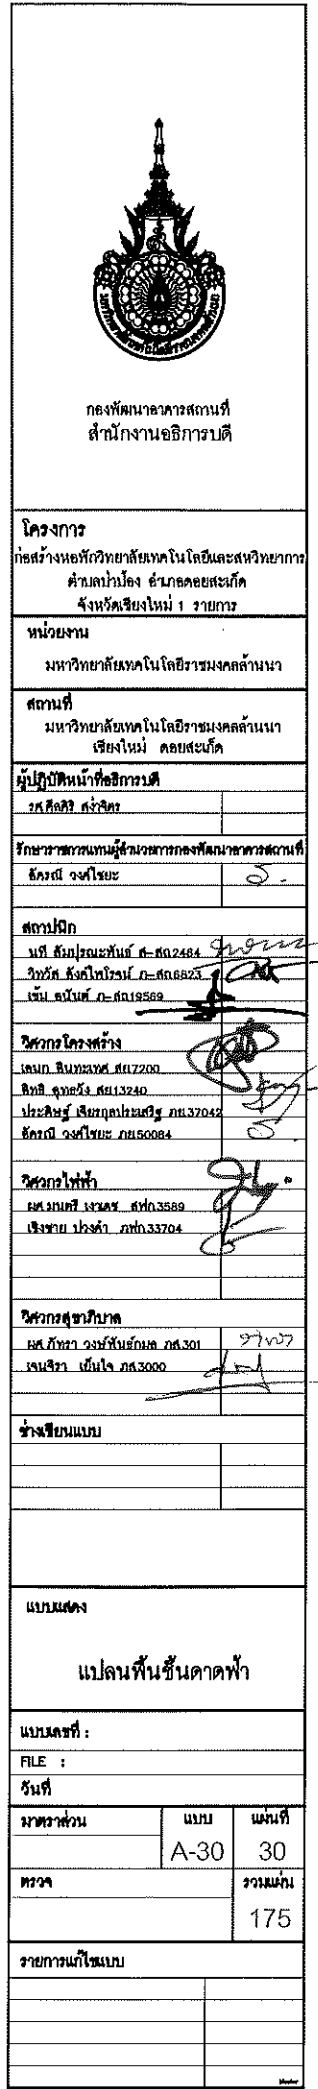 กองพัฒนาอาคารสถานที่
สำนักงานอธิการบดี
โครงการ
ก่อสร้างหอพักวิทยาลัยเทคโนโลยีและสหวิทยาการ
ตำบลป่าป้อง อำเภอดอยสะเก็ด
จังหวัดเชียงใหม่ 1 รายการ
หน่วยงาน
มหาวิทยาลัยเทคโนโลยีราชมงคลล้านนา
สถานที่
มหาวิทยาลัยเทคโนโลยีราชมงคลล้านนา
เชียงใหม่ ดอยสะเก็ด
ผู้ปฏิบัติหน้าที่อธิการบดี
รศ.ศีลศิริ สง่าจิตร
รักษาราชการแทนผู้อำนวยการกองพัฒนาอาคารสถานที่
อัครณี วงศ์ไชยะ
สถาปนิก
นที สัมปุรณะพันธ์ ส-สถ2484
วิทวัส สิงห์ไพโรจน์ ภ-สถ6823
เข็ม อนันต์ ภ-สถ19569
วิศวกรโครงสร้าง
เสนก สินทะเทศ สย7200
สิทธิ สย13240
ประดิษฐ์ เจียรกุลประเสริฐ ภย37042
อัครณี วงศ์ไชยะ ภย50084
วิศวกรไฟฟ้า
ผศ.มนตรี เงาเดช สฟก3589
เชิงชาย ปวงคำ ภฟก33704
วิศวกรสุขาภิบาล
ผศ.ภัทรา วงษ์พันธ์กมล ภส.301
เจนจิรา เย็นใจ ภส.3000
ช่างเขียนแบบ
แบบแสดง
แปลนพื้นชั้นดาดฟ้า
แบบเลขที่ :
FILE :
วันที่
มาตราส่วน แบบ แผ่นที่
A-30 30
ตรวจ รวมแผ่น
175
รายการแก้ไขแบบ